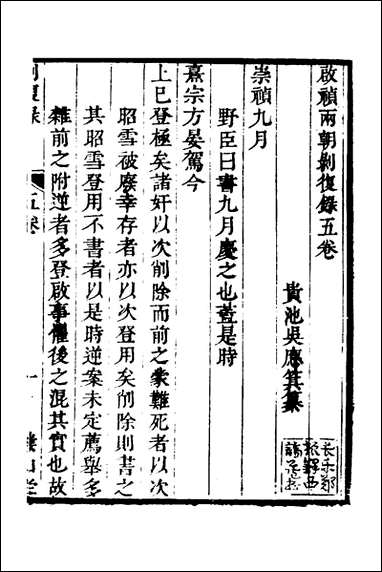 啟禎兩朝剝復錄五卷
貴池吳應箕纂
崇禎九月
野臣曰書九月慶之也蓋是時
熹宗方晏駕今
上已登極矣諸奸以次削除而前之蒙難死者以次
昭雪被廢幸存者亦以次登用矣削除則書之
其昭雪登用不書者以是時逆案未定薦舉多
雜前之附逆者多登啟事懼後之混其實也故
五卷
一
樓山堂